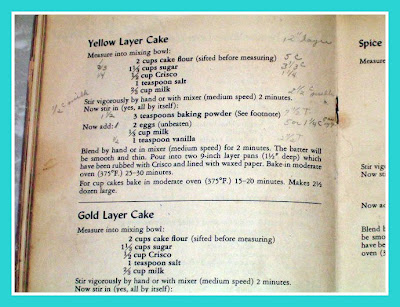 Yellow Layer Cake
Spice
Measure into mixing bowl:
Measure
2 cups cake flour (sifted before measuring)
1⅓ cups sugar
⅓ cup Crisco
1 teaspoon salt
⅔ cup milk
Stir vigorously by hand or with mixer (medium speed) 2 minutes.
Now stir in (yes, all by itself):
3 teaspoons baking powder (See footnote)
Now add:
2 eggs (unbeaten)
⅔ cup milk
1 teaspoon vanilla
Blend by hand or in mixer (medium speed) for 2 minutes. The batter will
be smooth and thin. Pour into two 9-inch layer pans (1½" deep) which
have been rubbed with Crisco and lined with waxed paper. Bake in moderate
oven (375°F.) 25-30 minutes.
Stir vig
Now sti
For cup cakes bake in moderate oven (375°F.) 15-20 minutes. Makes 2½
dozen large.
Now add
Gold Layer Cake
Measure into mixing bowl:
Blend b
2 cups cake flour (sifted before measuring)
be smo
1⅓ cups sugar
have be
⅓ cup Crisco
oven (3
1 teaspoon salt
⅔ cup milk
Stir vigorously by hand or with mixer (medium speed) 2 minutes.
Now stir in (yes, all by itself):